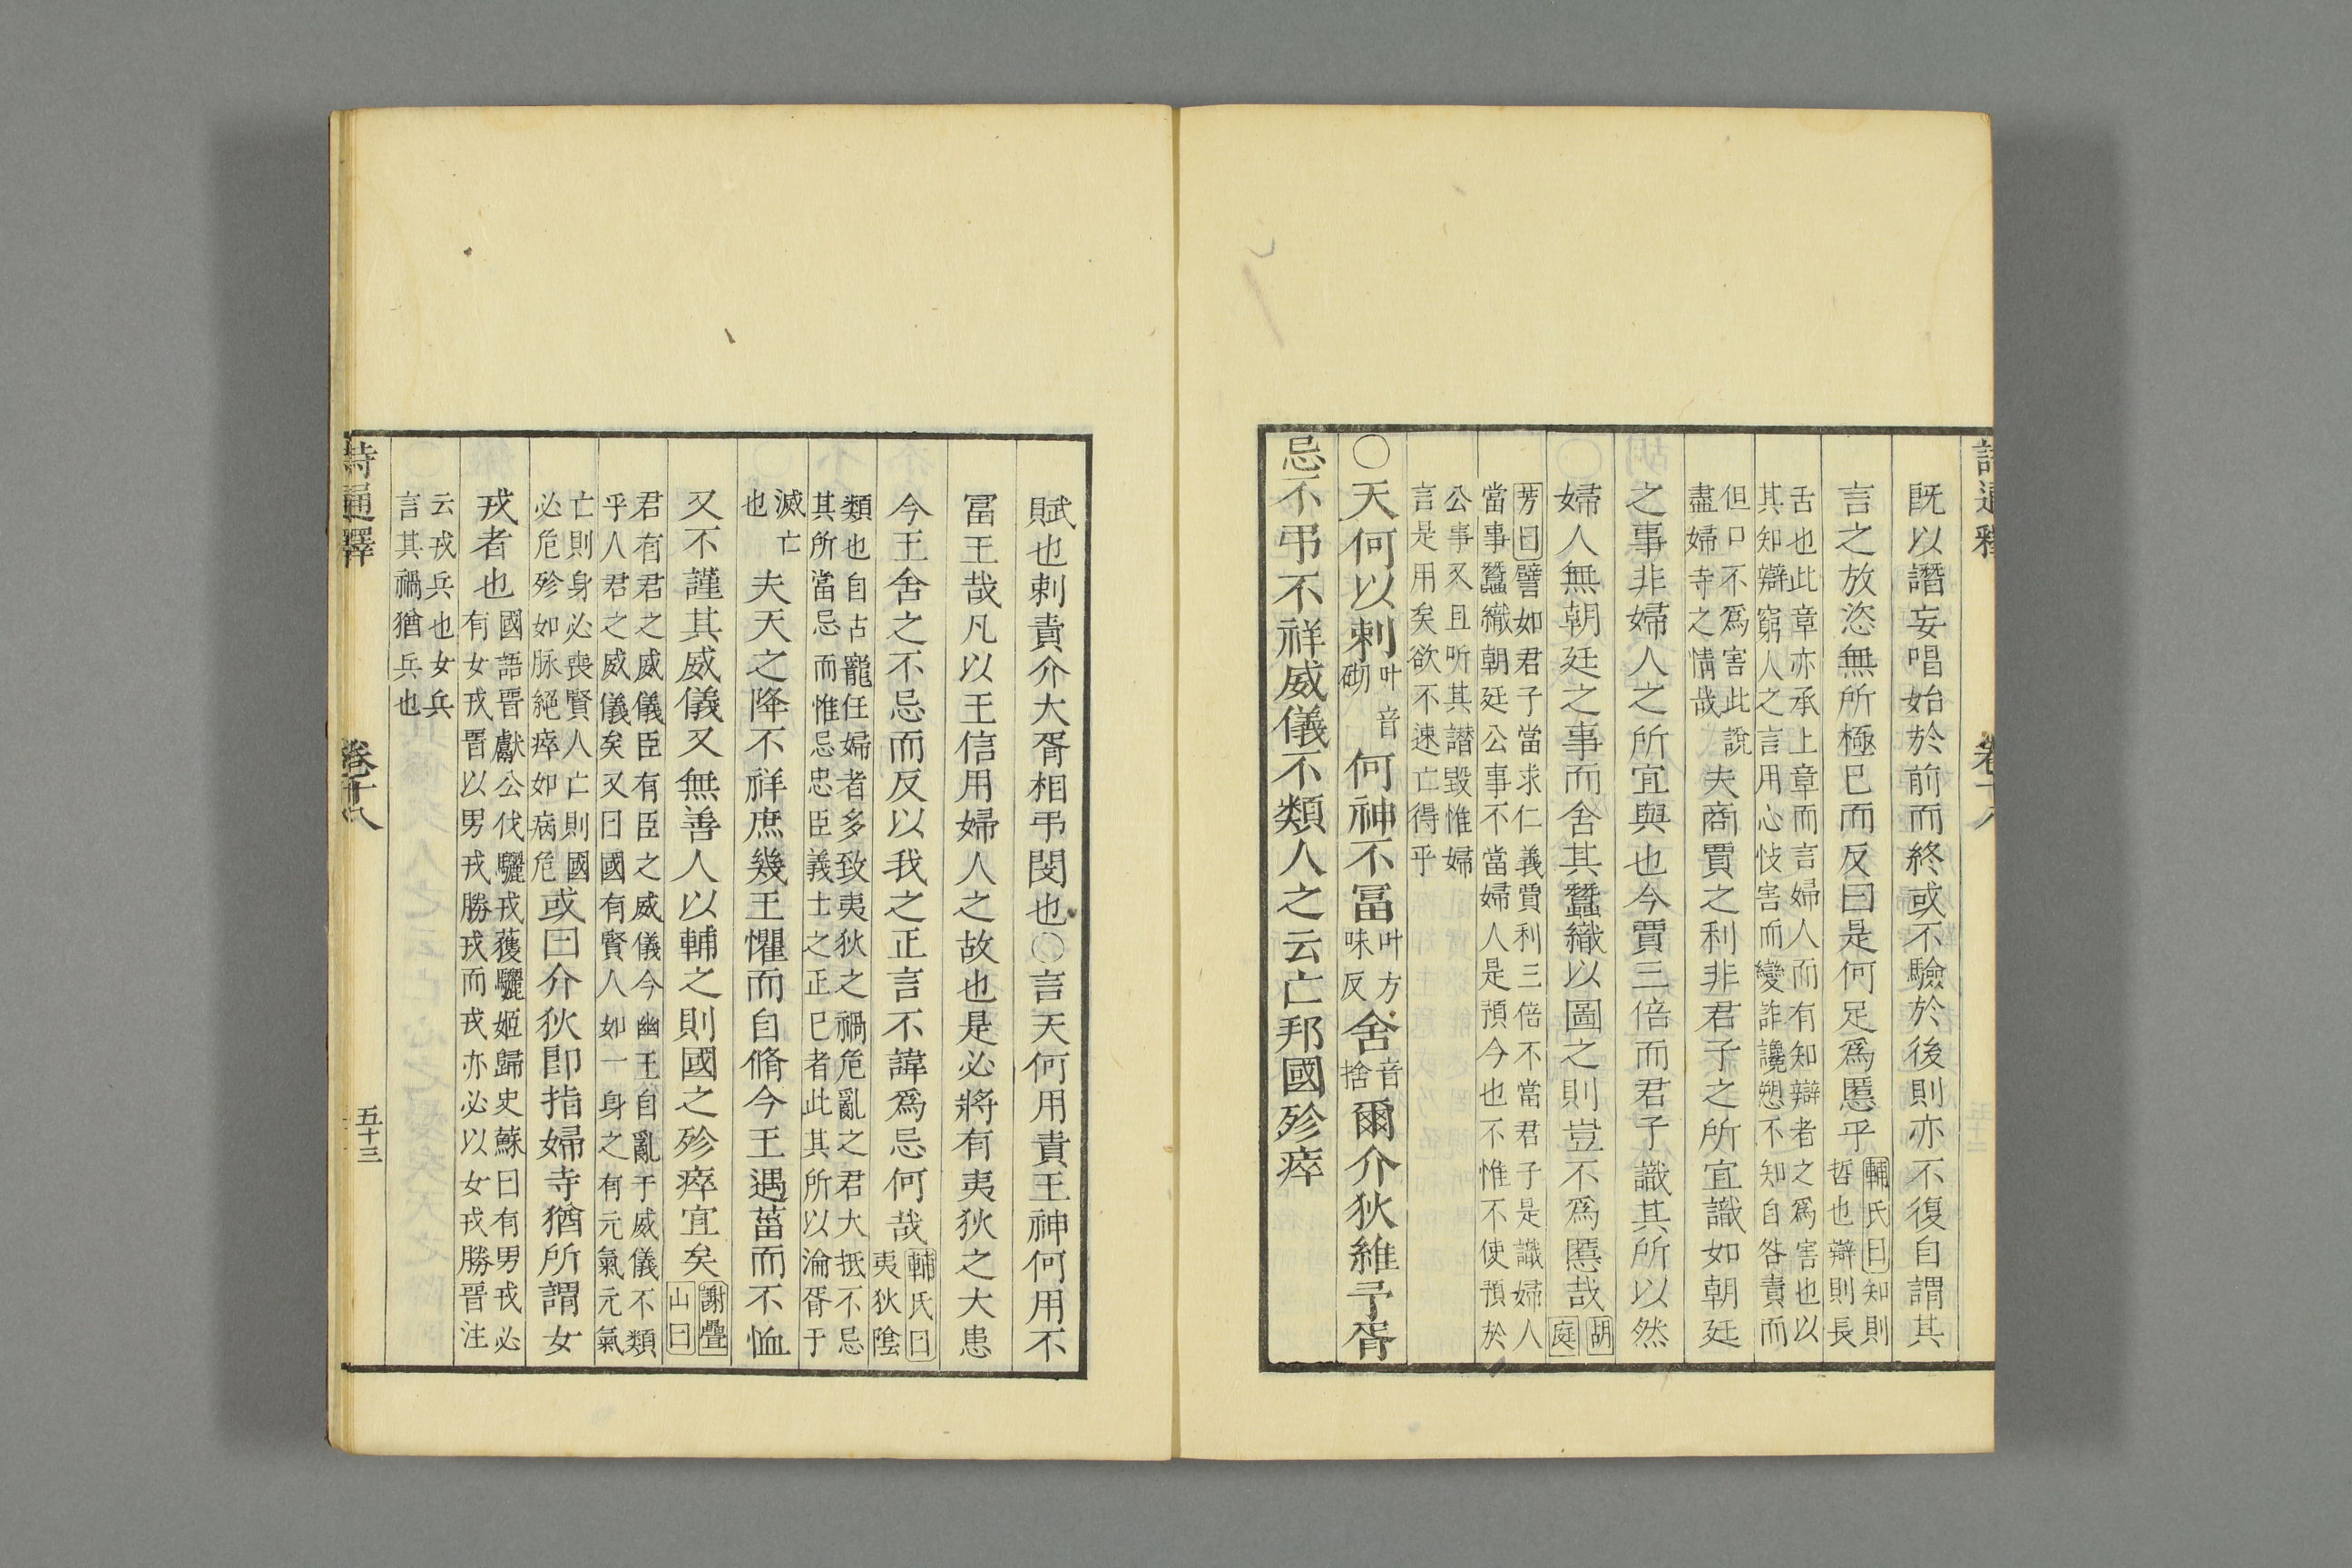 既以譖妄唱始於前而終或不驗於後則亦不復自謂其
言之放恣無所極巳而反曰是何足爲慝乎輔氏曰知則
哲也辯則長
舌也此章亦承上章而言婦人而有知辯者之爲害也以
其知辯窮人之言用心忮害而變詐讒愬不知自咎責而
但口不爲害此說
盡婦寺之情哉夫商賈之利非君子之所宜識如朝廷
之事非婦人之所宜與也今賈三倍而君子識其所以然
婦人無朝廷之事而舍其蠶織以圖之則豈不爲慝哉胡
庭
芳曰譬如君子當求仁義賈利三倍不當君子是識婦人
當事蠶織朝廷公事不當婦人是預今也不惟不使預於
公事又且听其譖毀惟婦
言是用矣欲不速亡得乎
〇天何以刺叶音
砌何神不冨叶方
味反舍音
捨爾介狄維予胥
忌不弔不祥威儀不類人之云亡邦國殄瘁
詩通釋 卷十八
賦也刺責介大胥相弔閔也〇言天何用責王神何用不
冨王哉凡以王信用婦人之故也是必將有夷狄之大患
今王舍之不忌而反以我之正言不諱爲忌何哉輔氏曰
夷狄陰
類也自古寵任婦者多致夷狄之禍危亂之君大抵不忌
其所當忌而惟忌忠臣義士之正巳者此其所以淪胥于
滅亡
也夫天之降不祥庶幾王懼而自脩今王遇菑而不恤
又不謹其威儀又無善人以輔之則國之殄瘁宜矣謝疊
山曰
君有君之威儀臣有臣之威儀今幽王自亂于威儀不類
乎人君之威儀矣又曰國有賢人如一身之有元氣元氣
亡則身必喪賢人亡則國
必危殄如脉絕瘁如病危或曰介狄卽指婦寺猶所謂女
戎者也國語晋獻公伐驪戎獲驪姬歸史蘇曰有男戎必
有女戎晋以男戎勝戎而戎亦必以女戎勝晋注
云戎兵也女兵
言其禍猶兵也
詩通釋 卷十八 五十三